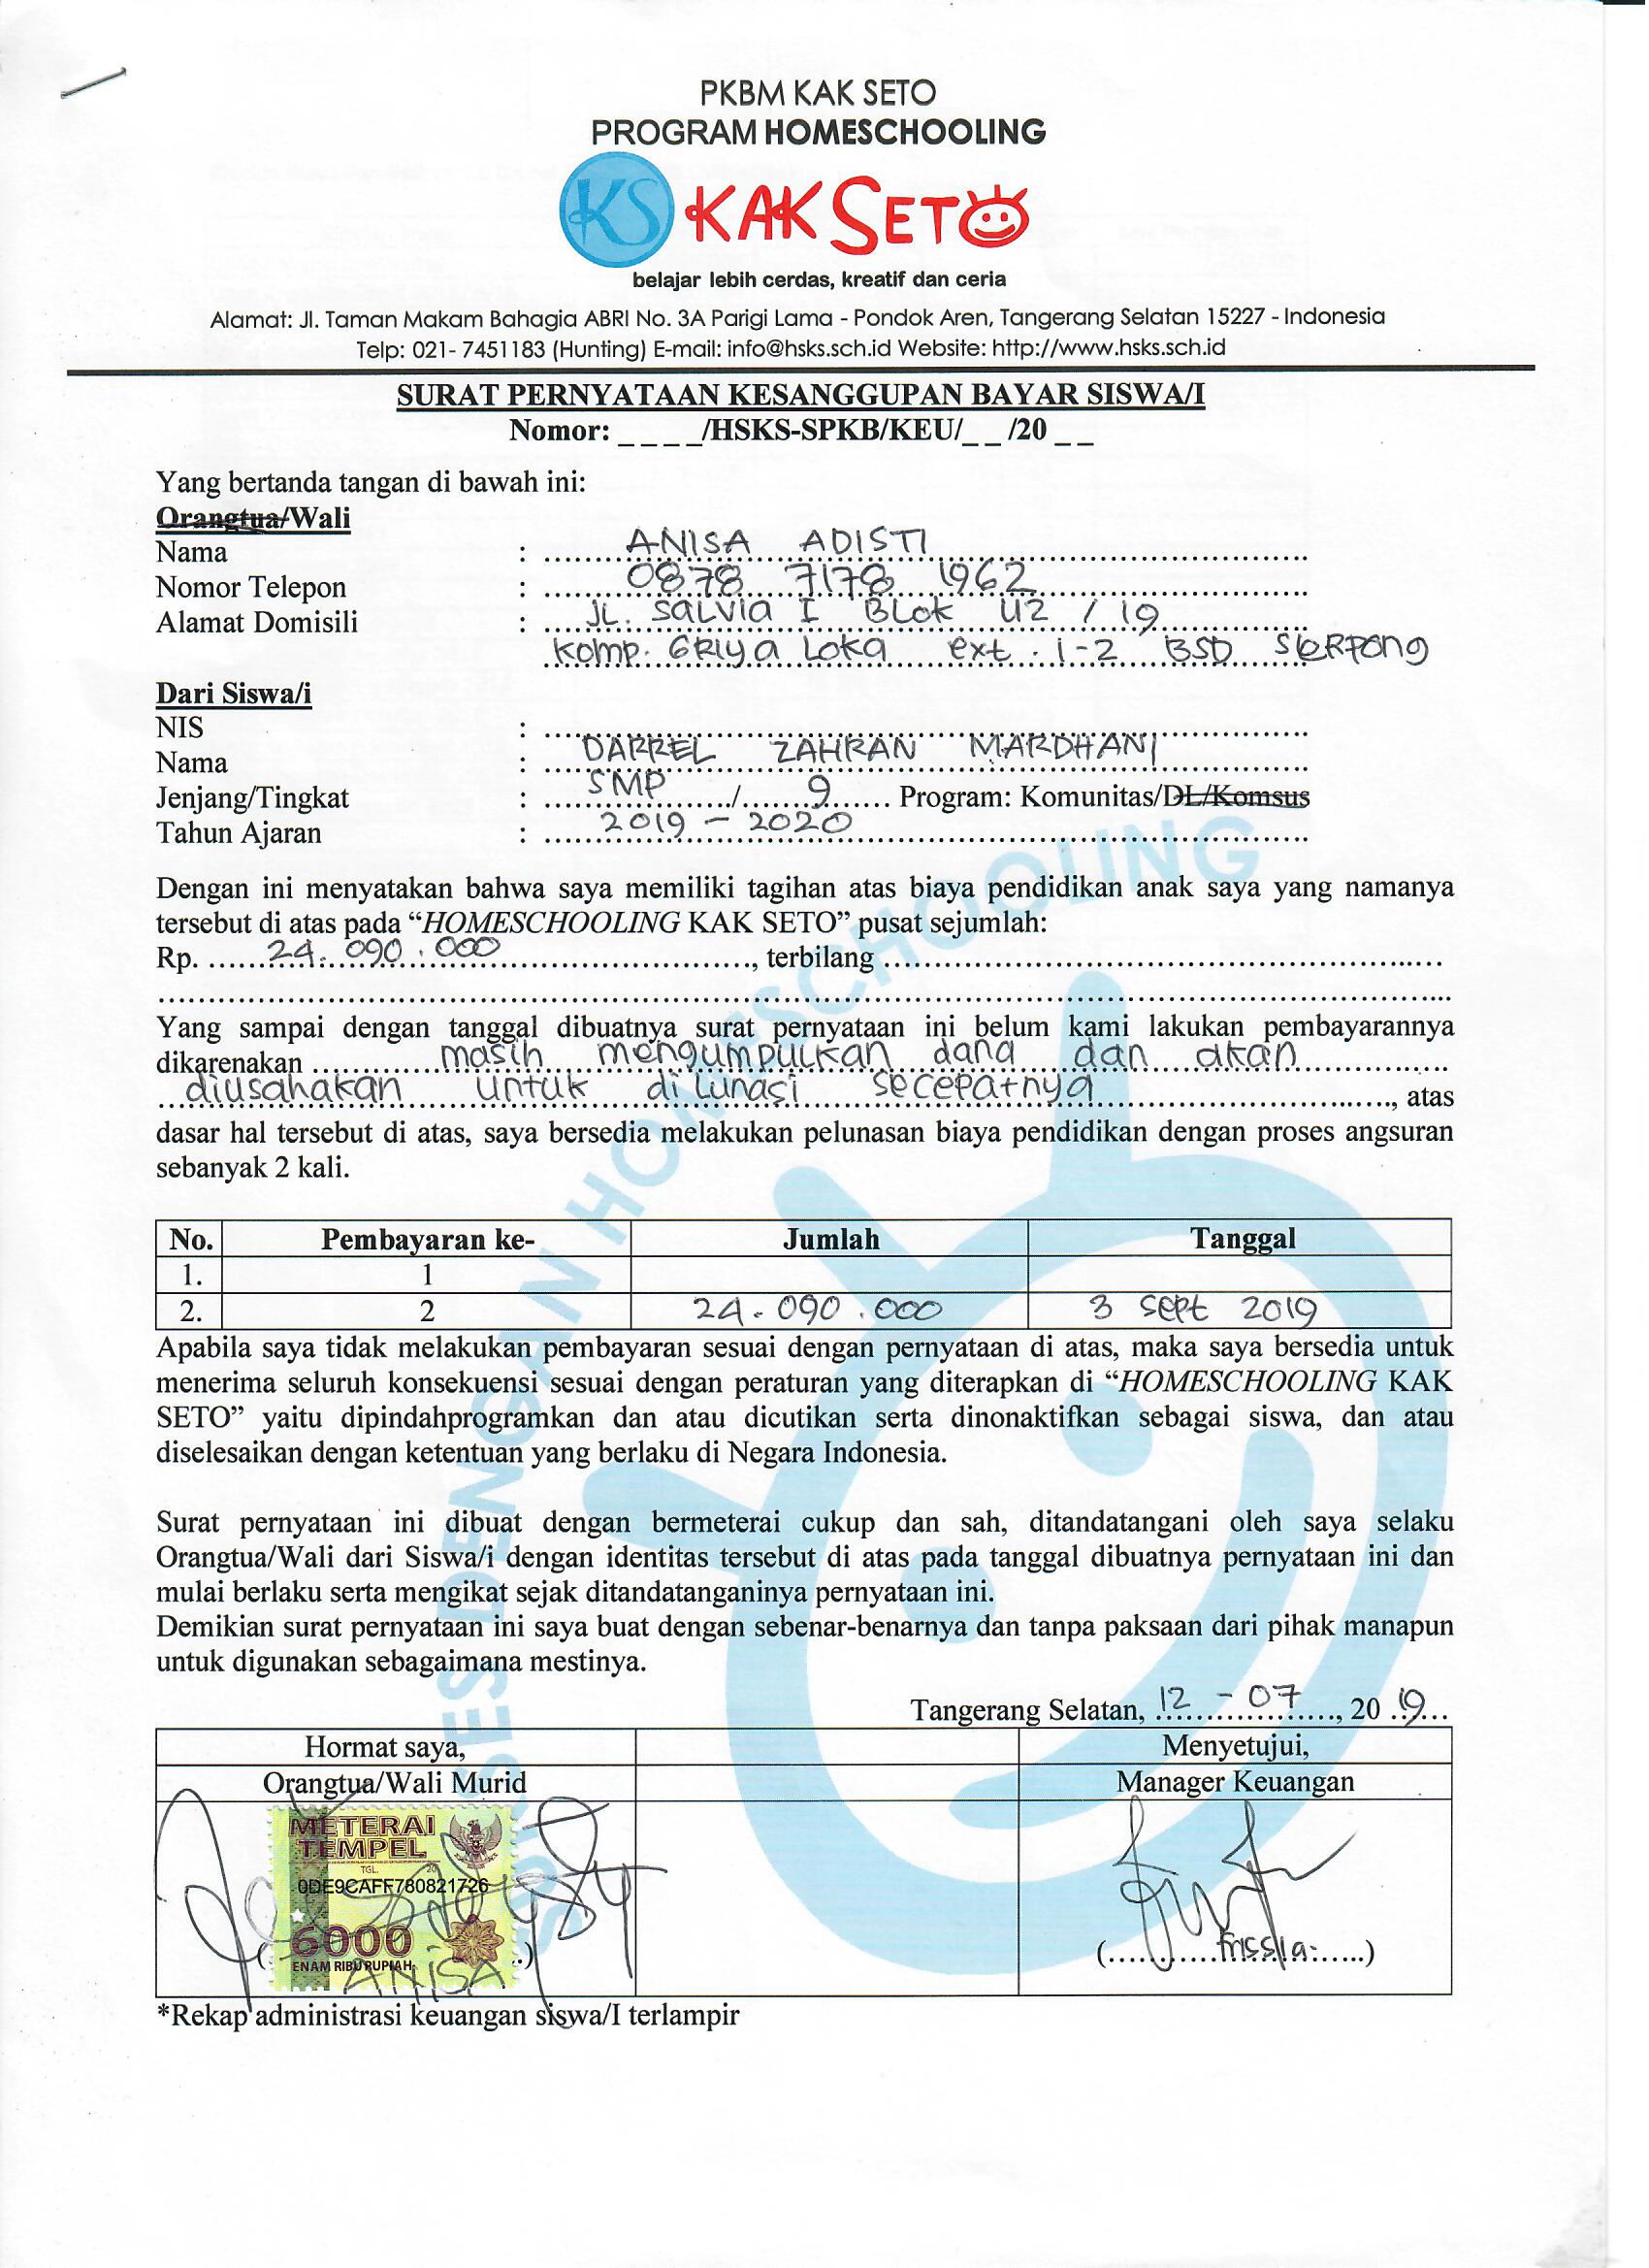 PKBM KAK SETO
PROGRAM HOMESCHOOLING
KS KAK SETO
belajar lebih cerdas, kreatif dan ceria
Alamat: Jl. Taman Makam Bahagia ABRI No. 3A Parigi Lama - Pondok Aren, Tangerang Selatan 15227 - Indonesia
Telp: 021- 7451183 (Hunting) E-mail: info@hsks.sch.id Website: http://www.hsks.sch.id
SURAT PERNYATAAN KESANGGUPAN BAYAR SISWA/I
Nomor: _ _ _ _/HSKS-SPKB/KEU/_ _ /20 _ _
Yang bertanda tangan di bawah ini:
Orangtua/Wali
Nama : ANISA ADISTI
Nomor Telepon : 0878 7178 1962
Alamat Domisili : JL. Salvia I Blok U2 / 19
Komp. Griya Loka ext. 1-2 BSD Serpong
Dari Siswa/i
NIS :
Nama : DARREL ZAHRAN MARDHANI
Jenjang/Tingkat : SMP / 9 Program: Komunitas/DL/Komsus
Tahun Ajaran : 2019 - 2020
Dengan ini menyatakan bahwa saya memiliki tagihan atas biaya pendidikan anak saya yang namanya
tersebut di atas pada “HOMESCHOOLING KAK SETO” pusat sejumlah:
Rp. 24.090.000, terbilang
Yang sampai dengan tanggal dibuatnya surat pernyataan ini belum kami lakukan pembayarannya
dikarenakan masih mengumpulkan dana dan akan
diusahakan untuk dilunasi secepatnya, atas
dasar hal tersebut di atas, saya bersedia melakukan pelunasan biaya pendidikan dengan proses angsuran
sebanyak 2 kali.
No. Pembayaran ke- Jumlah Tanggal
1. 1
2. 2 24.090.000 3 Sept 2019
Apabila saya tidak melakukan pembayaran sesuai dengan pernyataan di atas, maka saya bersedia untuk
menerima seluruh konsekuensi sesuai dengan peraturan yang diterapkan di “HOMESCHOOLING KAK
SETO” yaitu dipindahprogramkan dan atau dicutikan serta dinonaktifkan sebagai siswa, dan atau
diselesaikan dengan ketentuan yang berlaku di Negara Indonesia.
Surat pernyataan ini dibuat dengan bermeterai cukup dan sah, ditandatangani oleh saya selaku
Orangtua/Wali dari Siswa/i dengan identitas tersebut di atas pada tanggal dibuatnya pernyataan ini dan
mulai berlaku serta mengikat sejak ditandatanganinya pernyataan ini.
Demikian surat pernyataan ini saya buat dengan sebenar-benarnya dan tanpa paksaan dari pihak manapun
untuk digunakan sebagaimana mestinya.
Tangerang Selatan, 12 - 07, 20 19
Hormat saya, Menyetujui,
Orangtua/Wali Murid Manager Keuangan
METERAI
TEMPEL
TGL. 20
0DE9CAFF780821726
6000
ENAM RIBU RUPIAH
ANISA
*Rekap administrasi keuangan siswa/I terlampir